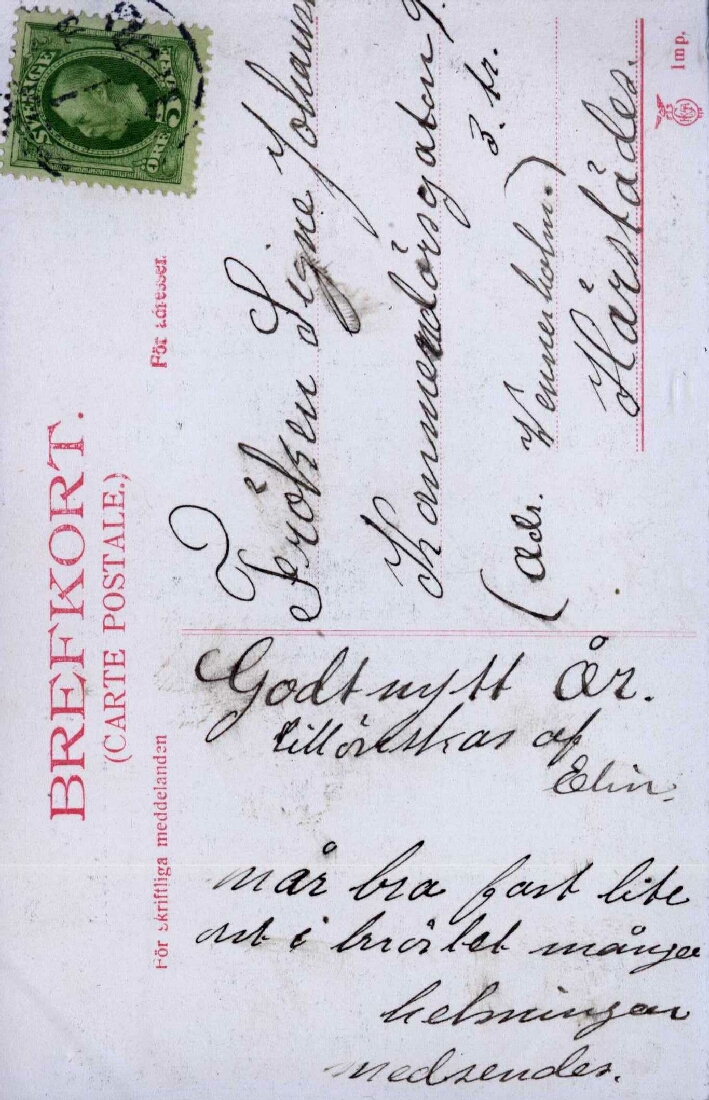 BREFKORT.
(CARTE POSTALE.)
För skriftliga meddelanden
För adressen.
SVERIGE
ÖRE
Godt nytt År.
tillönskas af
Elin.
mår bra fast lite
ont i bröstet många
helsningar
medsendes.
Fröken Signe Johans
Kammendörsgatan 9.
3. tr.
(adr. Wennerholm.)
Härstädes.
Imp.